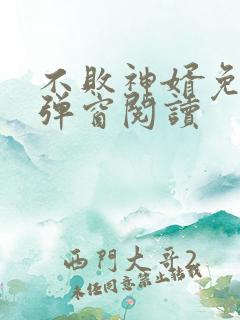 不敗神婿免
彈窗閱讀
西門大哥2
未經同意禁止轉載